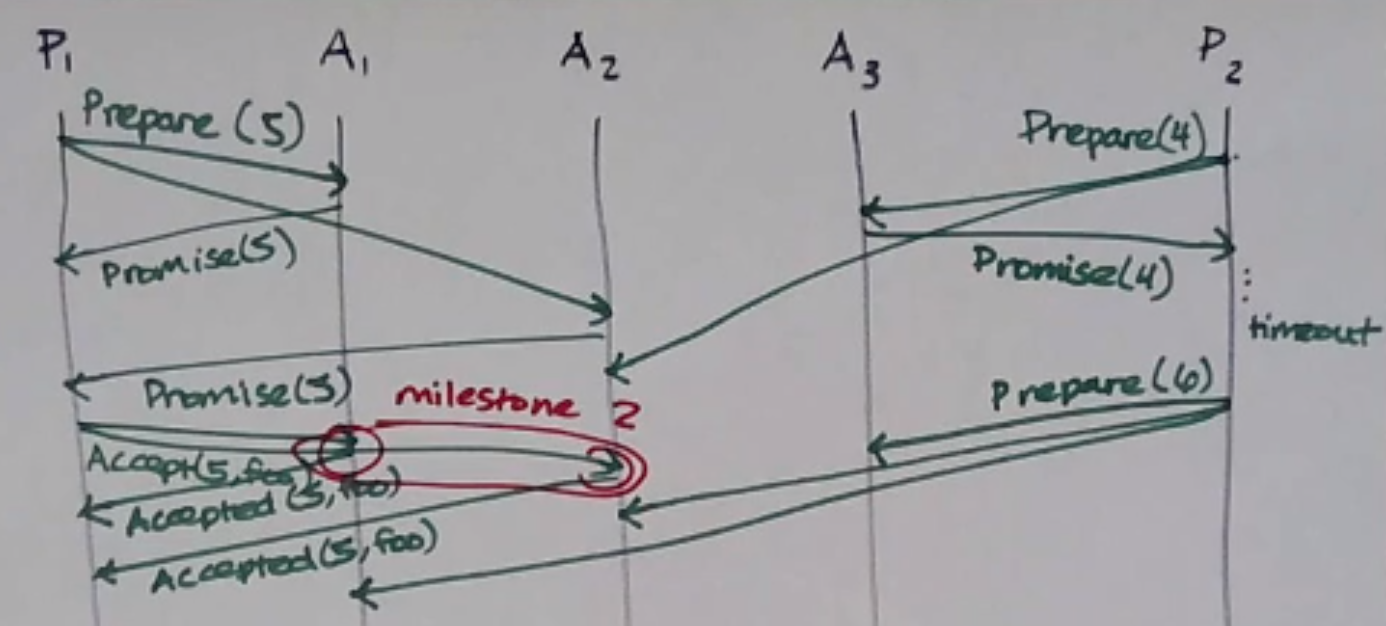 P1 A1 A2 A3 P2
Prepare (5)
Prepare(4)
Promise(5)
Promise(4)
timeout
Promise(5)
milestone 2
Prepare(6)
Accept(5,foo)
Accepted (5, foo)
Accepted (5, foo)